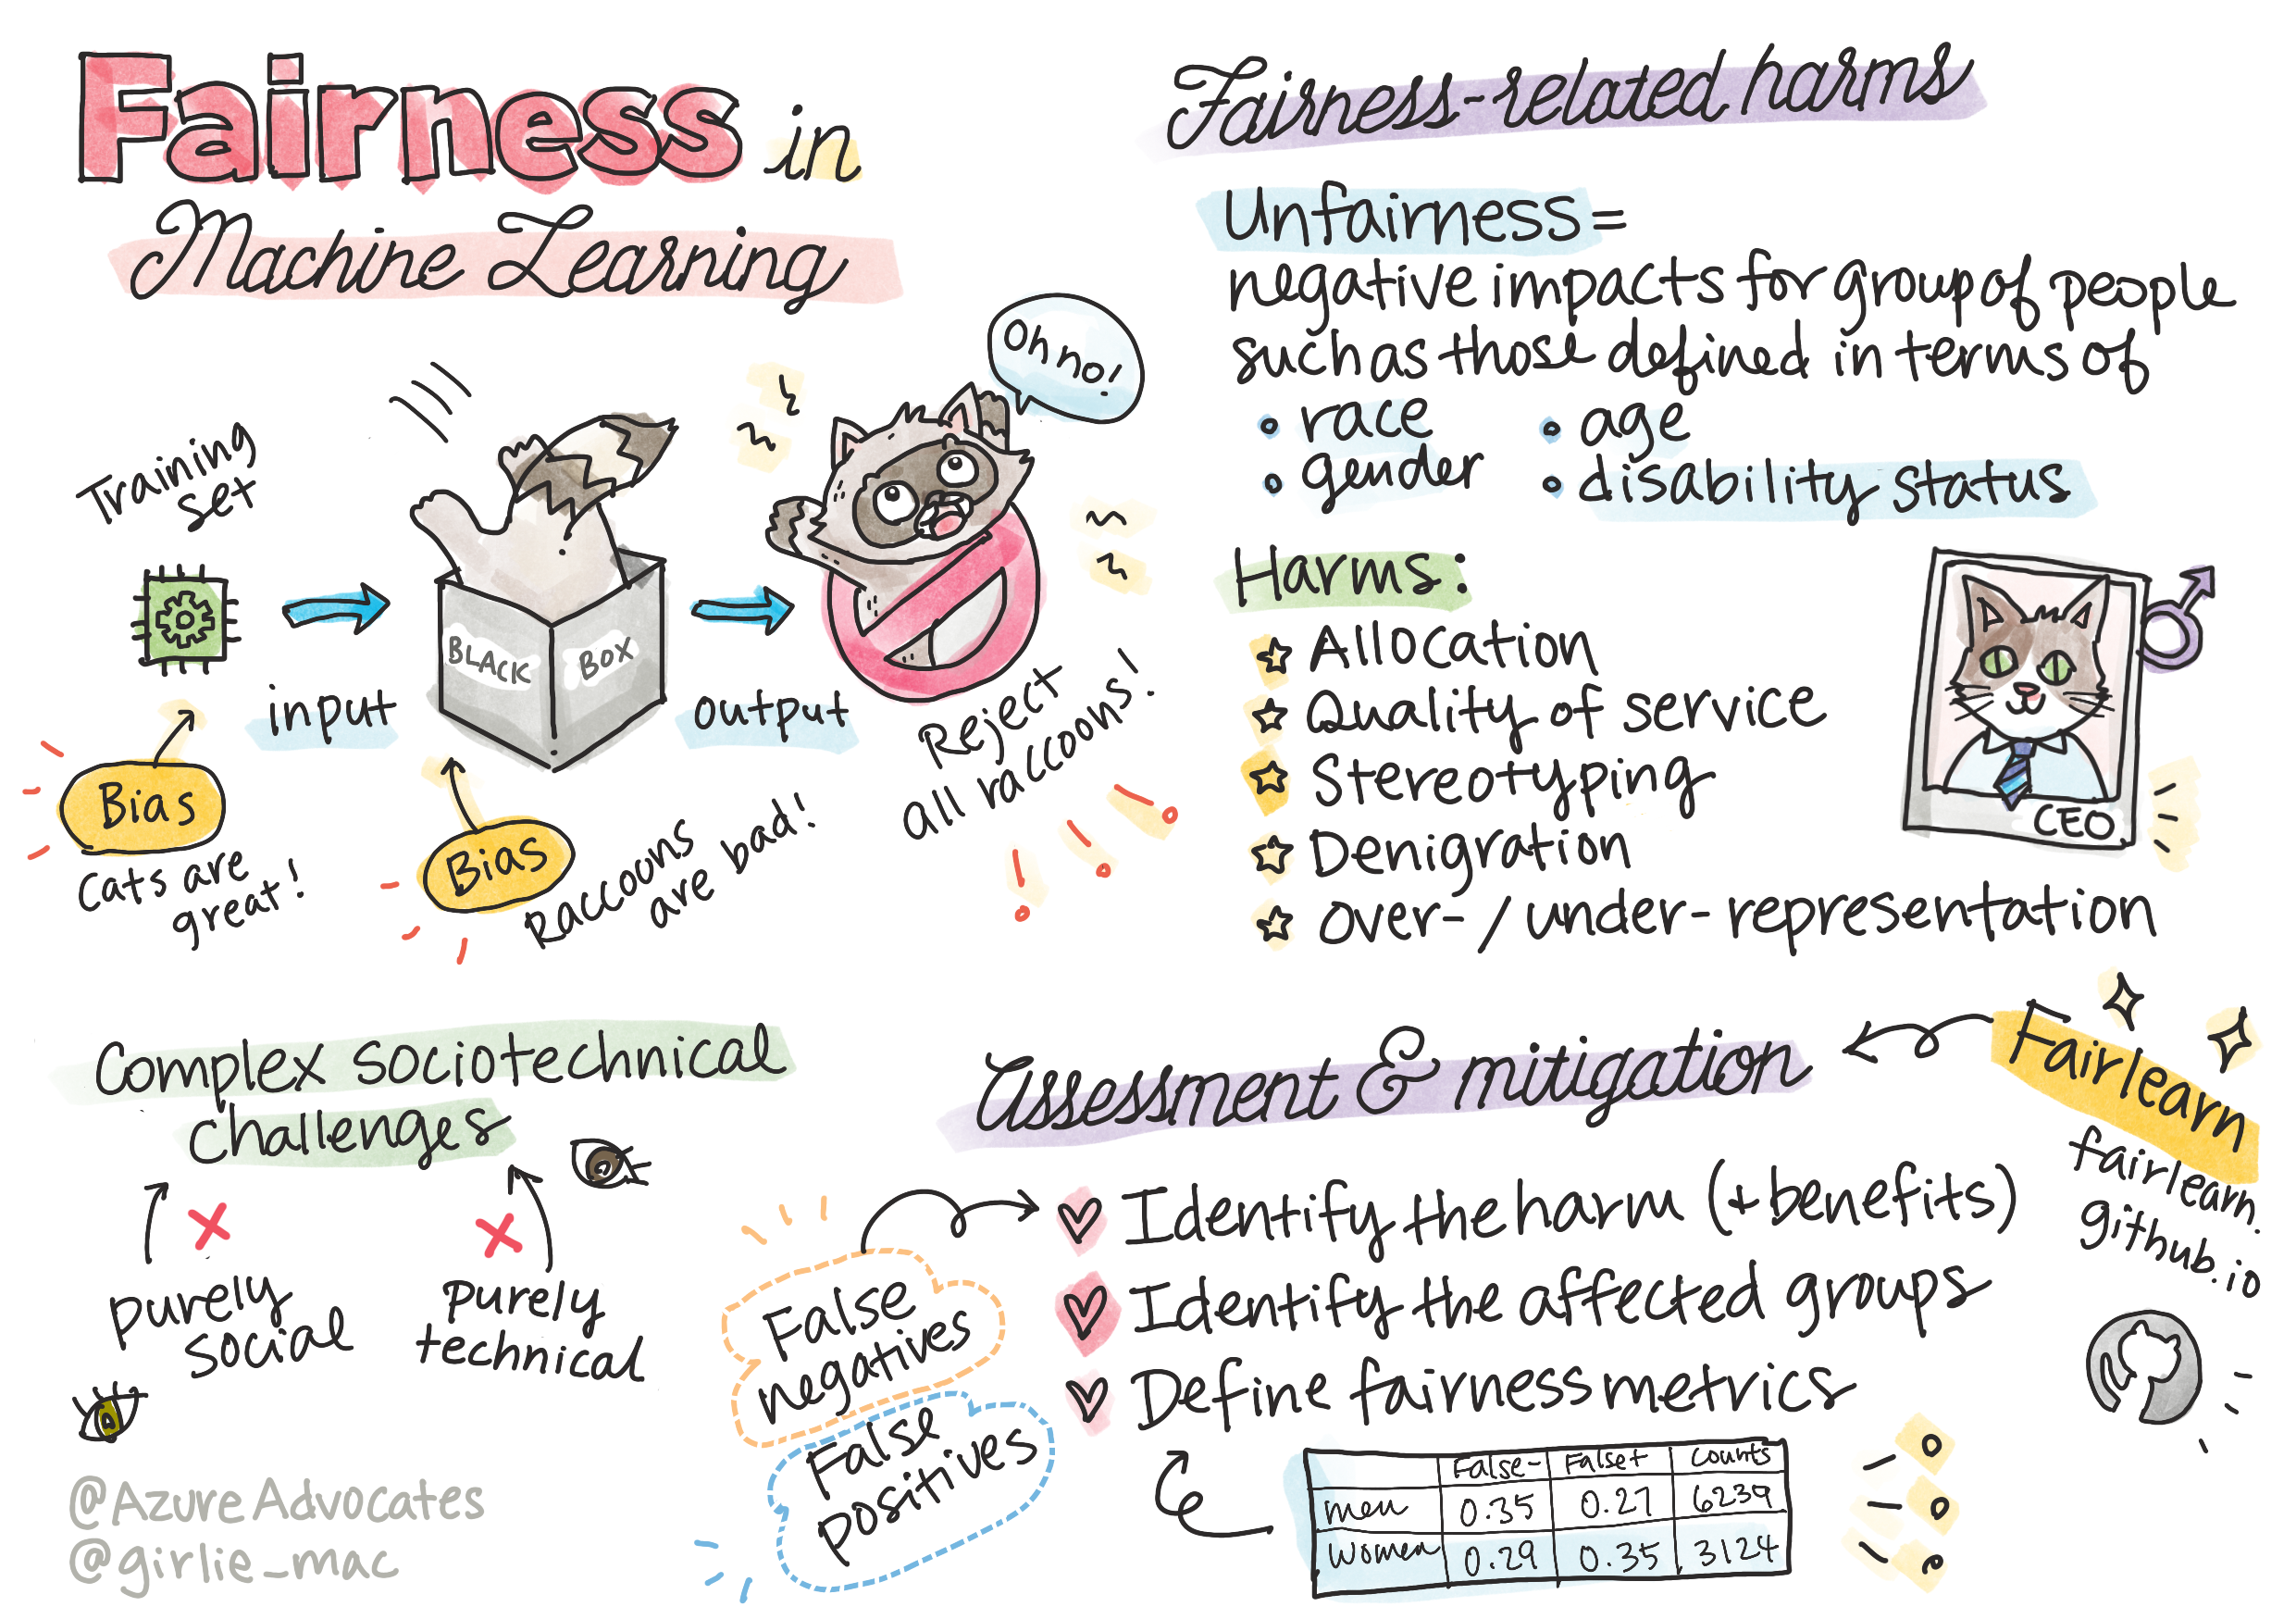 Fairness in
Machine Learning
Oh no!
Training
set
input
BLACK BOX
output
Reject
all raccoons!
Bias
Cats are
great!
Bias
Raccoons
are bad!
Fairness-related harms
Unfairness =
negative impacts for group of people
such as those defined in terms of
• race
• age
• gender
• disability status
Harms:
Allocation
Quality of service
Stereotyping
Denigration
over- / under- representation
CEO
Complex sociotechnical
challenges
purely
social
purely
technical
@AzureAdvocates
@girlie_mac
Assessment & mitigation
Fairlearn
fairlearn.
github.io
Identify the harm (+ benefits)
Identify the affected groups
Define fairness metrics
False
negatives
False
positives
False- False+ counts
men 0.35 0.27 6239
women 0.29 0.35 3124